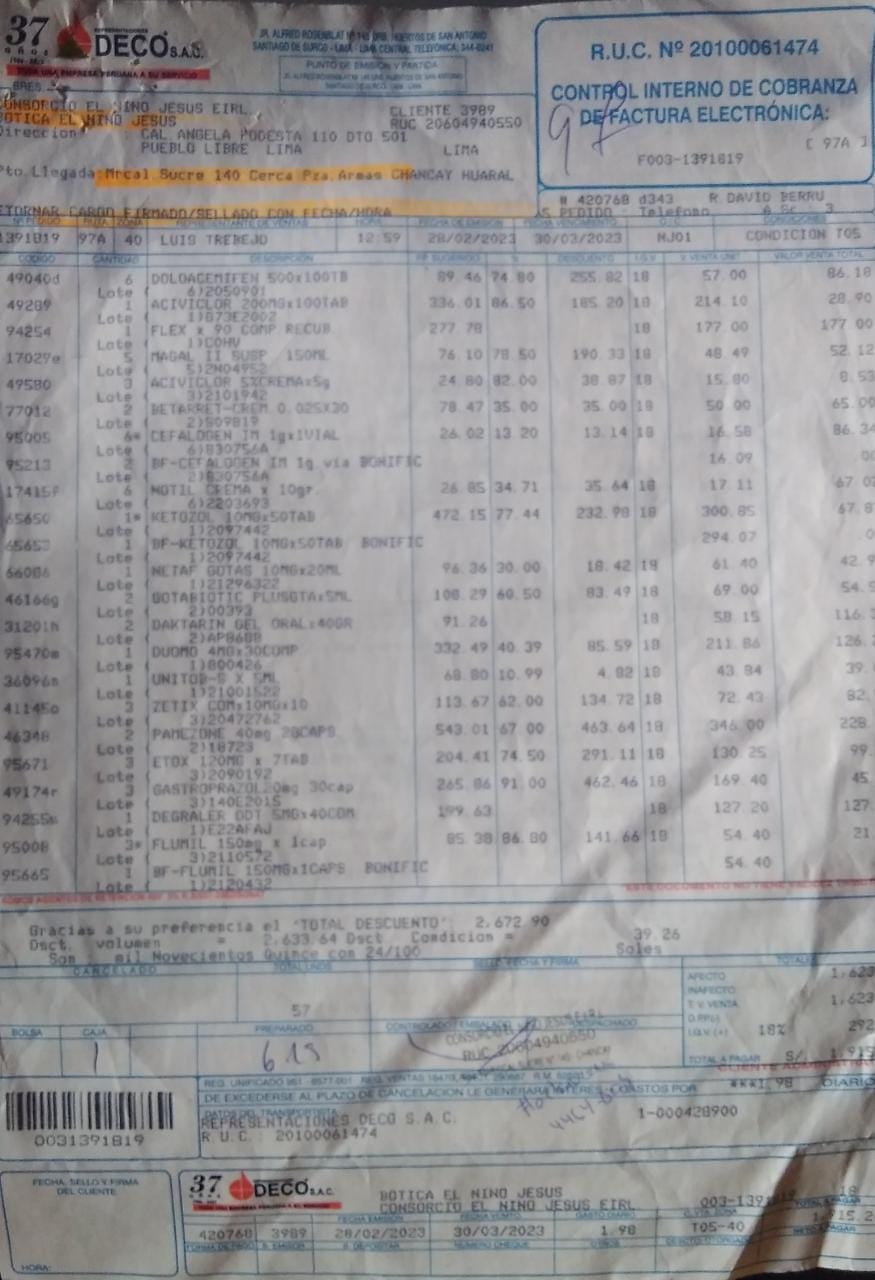 37 AÑOS
REPRESENTACIONES
DECO S.A.C.
TODA UNA EMPRESA PERUANA A SU SERVICIO
JR. ALFRED ROSENBLAT Nº 142 URB. HUERTOS DE SAN ANTONIO
SANTIAGO DE SURCO - LIMA - LIMA CENTRAL TELEFÓNICA: 344-0241
PUNTO DE EMISIÓN Y PARTIDA
R.U.C. Nº 20100061474
CONTROL INTERNO DE COBRANZA
DE FACTURA ELECTRÓNICA:
[ 97A ]
F003-1391819
97
BRES.
CONSORCIO EL NINO JESUS EIRL
BOTICA EL NINO JESUS
CLIENTE 3989
RUC 20604940550
Direccion CAL ANGELA PODESTA 110 DTO 501
PUEBLO LIBRE LIMA LIMA
Pto. Llegada: Mrcal Sucre 140 Cerca Pza. Armas CHANCAY HUARAL
# 420768 d343 R. DAVID BERRU
RETORNAR CARGO FIRMADO/SELLADO CON FECHA/HORA AS PEDIDO: Telefono
Nº PEDIDO RUTA ZONA REPRESENTANTE DE VENTAS HORA FECHA DE EMISION FECHA VENCIMIENTO O.C. CONDICIONES
1391819 97A 40 LUIS TREBEJO 12:59 28/02/2023 30/03/2023 NJ01 CONDICION T05
CODIGO CANTIDAD DESCRIPCION P.P. SUGERIDO % DESCUENTO I.G.V. V. VENTA UNIT VALOR VENTA TOTAL
49040d 6 DOLOACEMIFEN 500x100TB 89.46 74.80 255.82 18 57.00 86.18
Lote ( 6)2050901
49289 1 ACIVICLOR 200MG×100TAB 336.01 86.50 185.20 18 214.10 28.90
Lote ( 1)873E2002
94254 1 FLEX x 90 COMP RECUB. 277.78 18 177.00 177.00
Lote ( 1)COHV
17029e 5 MAGAL II SUSP 150ML 76.10 78.50 190.33 18 48.49 52.12
Lote ( 5)2N04952
49580 3 ACIVICLOR 5%CREMAx5g 24.80 82.00 38.87 18 15.80 8.53
Lote ( 3)2101942
77012 2 BETARRET-CREM 0.025X30 78.47 35.00 35.00 18 50.00 65.00
Lote ( 2)S09819
95005 6* CEFALOGEN IM 1g×1VIAL 26.02 13.20 13.14 18 16.58 86.34
Lote ( 6)830756A
95213 2 BF-CEFALOGEN IM 1g via BONIFIC 16.09
Lote ( 2)830756A
17415F 6 NOTIL CREMA x 10gr. 26.85 34.71 35.64 18 17.11
Lote ( 6)2203693
65650 1* KETOZOL 10MG×50TAB 472.15 77.44 232.98 18 300.85
Lote ( 1)2097442
65653 1 BF-KETOZOL 10MG×50TAB BONIFIC 294.07
Lote ( 1)2097442
66086 1 NETAF GOTAS 10MG×20ML 96.36 30.00 18.42 18 61.40
Lote ( 1)21296322
46166g 2 GOTABIOTIC PLUSGTAx5ML 108.29 60.50 83.49 18 69.00
Lote ( 2)00393
31201h 2 DAKTARIN GEL ORAL×40GR 91.26 18 58.15
Lote ( 2)AP8688
95470m 1 DUOMO 4MG×30COMP 332.49 40.39 85.59 18 211.86
Lote ( 1)800426
36096n 1 UNITOB-S X 5ML 68.80 10.99 4.82 18 43.84
Lote ( 1)21001522
41145o 3 ZETIX COMx10MG×10 113.67 62.00 134.72 18 72.43
Lote ( 3)20472762
46348 2 PAMEZONE 40mg 28CAPS 543.01 67.00 463.64 18 346.00
Lote ( 2)18723
95671 3 ETOX 120MG x 7TAB 204.41 74.50 291.11 18 130.25
Lote ( 3)2090192
49174r 3 GASTROPRAZOL20mg 30cap 265.86 91.00 462.46 18 169.40
Lote ( 3)140E2015
94255s 1 DEGRALER ODT 5MG×40COM 199.63 18 127.20
Lote ( 1)E22AFAJ
95008 3* FLUMIL 150mg x 1cap 85.38 86.80 141.66 18 54.40
Lote ( 3)2110572
95665 1 BF-FLUMIL 150MG×1CAPS BONIFIC 54.40
Lote ( 1)2120432
Gracias a su preferencia el "TOTAL DESCUENTO": 2,672.90
Dsct. volumen = 2,633.64 Dsct Condicion = 39.26
Son mil Novecientos Quince con 24/100 Soles
CANCELADO TOTAL UNDS SELLO, FECHA Y FIRMA TOTAL
57
AFECTO 1,623
INAFECTO
T. V. VENTA 1,623
I.G.V. (+) 18% 292
TOTAL A PAGAR S/. 1,915
BOLSA CAJA PREPARADO CONTROLADO EMBALADO DESPACHADO
1
615
CONSORCIO EL NINO JESUS EIRL
RUC 20604940550
DE EXCEDERSE AL PLAZO DE CANCELACION LE GENERARA INTERES Y GASTOS POR ***1.98 DIARIO
DATOS DEL TRANSPORTISTA
REPRESENTACIONES DECO S.A.C. 1-000428900
R.U.C.: 20100061474
0031391819
FECHA, SELLO Y FIRMA
DEL CLIENTE
HORA:
37 AÑOS
DECO S.A.C.
BOTICA EL NINO JESUS
CONSORCIO EL NINO JESUS EIRL
003-1391819
FECHA EMISION FECHA VCMTO GASTO DIARIO
420768 3989 28/02/2023 30/03/2023 1.98 T05-40
FORMA DE PAGO B. EMISOR B. DEPOSITAR NUMERO CHEQUE